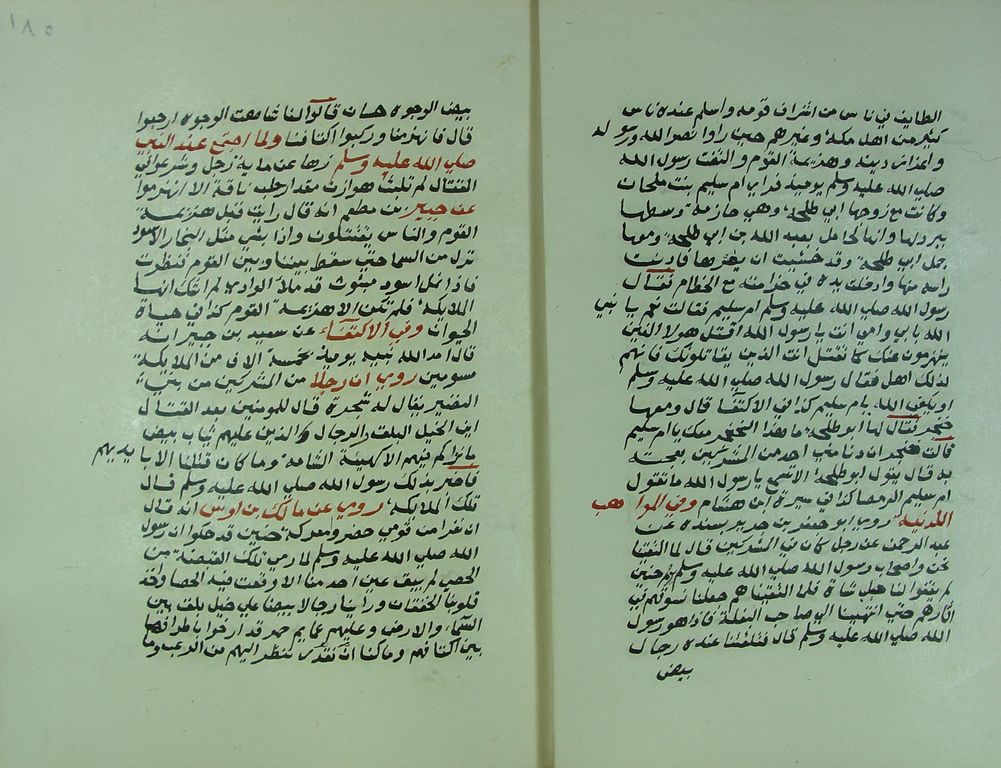 الطايف في ناس من اشراف قومه واسلم عنده ناس
كثير من اهل مكة وغيرهم حين راوا نصر الله ورسوله
واعزاز دينه وهزيمة القوم والتفت رسول الله
صلي الله عليه وسلم يوميذ فراي ام سليم بنت ملحان
وكانت مع زوجها ابي طلحة وهي حازمة وسطها
ببرد لها وانها لحامل بعبد الله بن ابي طلحة ومعها
جمل ابي طلحة وقد خشيت ان يغربها فادنت
راسه منها وادخلت يده في خزامته مع الخطام فقال
رسول الله صلي الله عليه وسلم ام سليم فقالت نعم يا نبي
الله بابي وامي انت يا رسول الله اقتل هولا الذين
ينهزمون عنك كما تقتل انت الذين يقاتلونك فانهم
لذلك اهل فقال رسول الله صلي الله عليه وسلم
او يكفي الله يام سليم كذا في الاكتفا قال ومعها
خنجر فقال لها ابو طلحة ما هذا الخنجر معك يام سليم
قالت خنجر ان دنا مني احد من المشركين بعجته
به قال يقول ابو طلحة الا تسمع يا رسول الله ما تقول
ام سليم الرمصا كذا في سيرة ابن هشام وفي المواهب
اللدنية روي ابو جعفر بن جرير بسنده عن
عبد الرحمن عن رجل كان في المشركين قال لما التقينا
نحن واصحاب رسول الله صلي الله عليه وسلم يوم حنين
لم يقفوا لنا حلب شاة فلما التقيناهم جعلنا نسوقهم في
اثارهم حتي انتهينا الي صاحب البغلة فاذا هو رسول
الله صلي الله عليه وسلم قال فتلقتنا عنده رجال
بيض
١٨٥
بيض الوجوه حسان قالوا لنا شاهت الوجوه ارجعوا
قال فانهزمنا وركبوا اكتافنا ولما اجتمع عند النبي
صلي الله عليه وسلم زها عن ماية رجل وشرعوا في
القتال لم تلبث هوازن مقدار حلب ناقة الا انهزموا
عن جبير بن مطعم انه قال رايت قبل هزيمة
القوم والناس يقتتلون واذا بشي مثل البجاد الاسود
نزل من السما حتي سقط بيننا وبين القوم فنظرت
فاذا نمل اسود مبثوث قد ملا الوادي لم اشك انها
الملايكة فلم تكن الا هزيمة القوم كذا في حياة
الحيوان وفي الاكتفاء عن سعيد بن جبير انه
قال امد الله نبيه يوميذ بخمسة الاف من الملايكة
مسومين روي ان رجلا من المشركين من بني
النضير يقال له شجرة قال للمومنين بعد القتال
اين الخيل البلق والرجال الذين عليهم ثياب بيض
ما نراكم فيهم الا كهيئة الشامة وما كان قتلنا الا بايديهم
فاخبر بذلك رسول الله صلي الله عليه وسلم قال
تلك الملايكة روي عن مالك بن اوس انه قال
ان نفرا من قومي حضروا معركة حنين قد حكوا ان رسول
الله صلي الله عليه وسلم لما رمي تلك القبضة من
الحصي لم يبق عين احد منا الا وقعت فيه الحصا واخذ
قلوبنا الخفقات وراينا رجالا بيضا علي خيل بلق بين
السماء والارض وعليهم عمايم حمر قد ارخوا باطرافها
بين اكتافهم وما كنا ان نقدر ننظر اليهم من الرعب وما